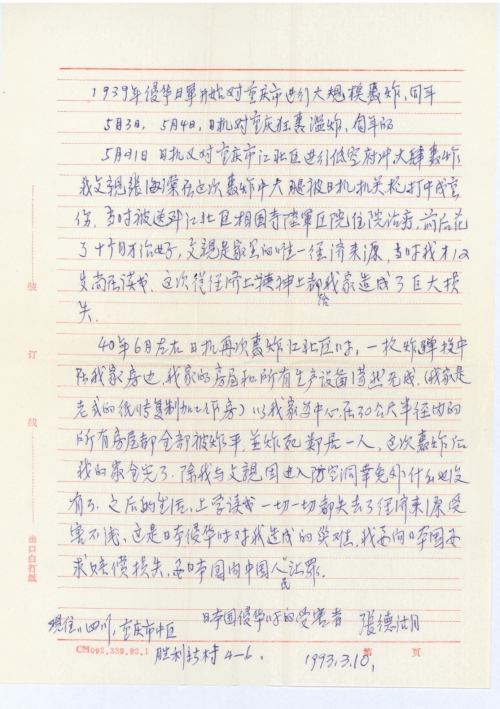 1939年侵华日軍开始对重庆市进行大规模轰炸，同年
5月3日，5月4日，日机对重庆狂轰滥炸，同年的
5月21日日机又对重庆市江北区进行低空俯冲大肆轰炸
我父親张海清在这次轰炸中大腿被日机机关枪打中成重
伤，当时被送外江北区相国寺陸軍医院住院治疗，前后花
了十个月才治好，父親是家里的唯一经济来源，当时我才12
岁尚在读书，这次从经济上精神上都给我家造成了巨大损
失。
40年6月左右日机再次轰炸江北区时，一枚炸弹投中
在我家房边，我家的房屋和所有生产设备荡然无成，(我家是
老式的纸 复制加工作房) 以我家为中心，在30公尺半径内的
所有房屋都全部被炸平，并炸死鄰居一人，这次轰炸后
我的家全完了，除我与父親因进入防空洞幸免外什么也没
有了，之后的生活，上学读书一切一切都失去了经济来源受
害不浅，这是日本侵华时对我造成的 ，我要向日本国要
求赔偿损失，要日本国向中国人民认罪。
日本国侵华时的受害者 張德
现住：四川，重庆市中区
胜利新村4-6.
1993.3.10,
装
订
线
出口白打纸
第 页